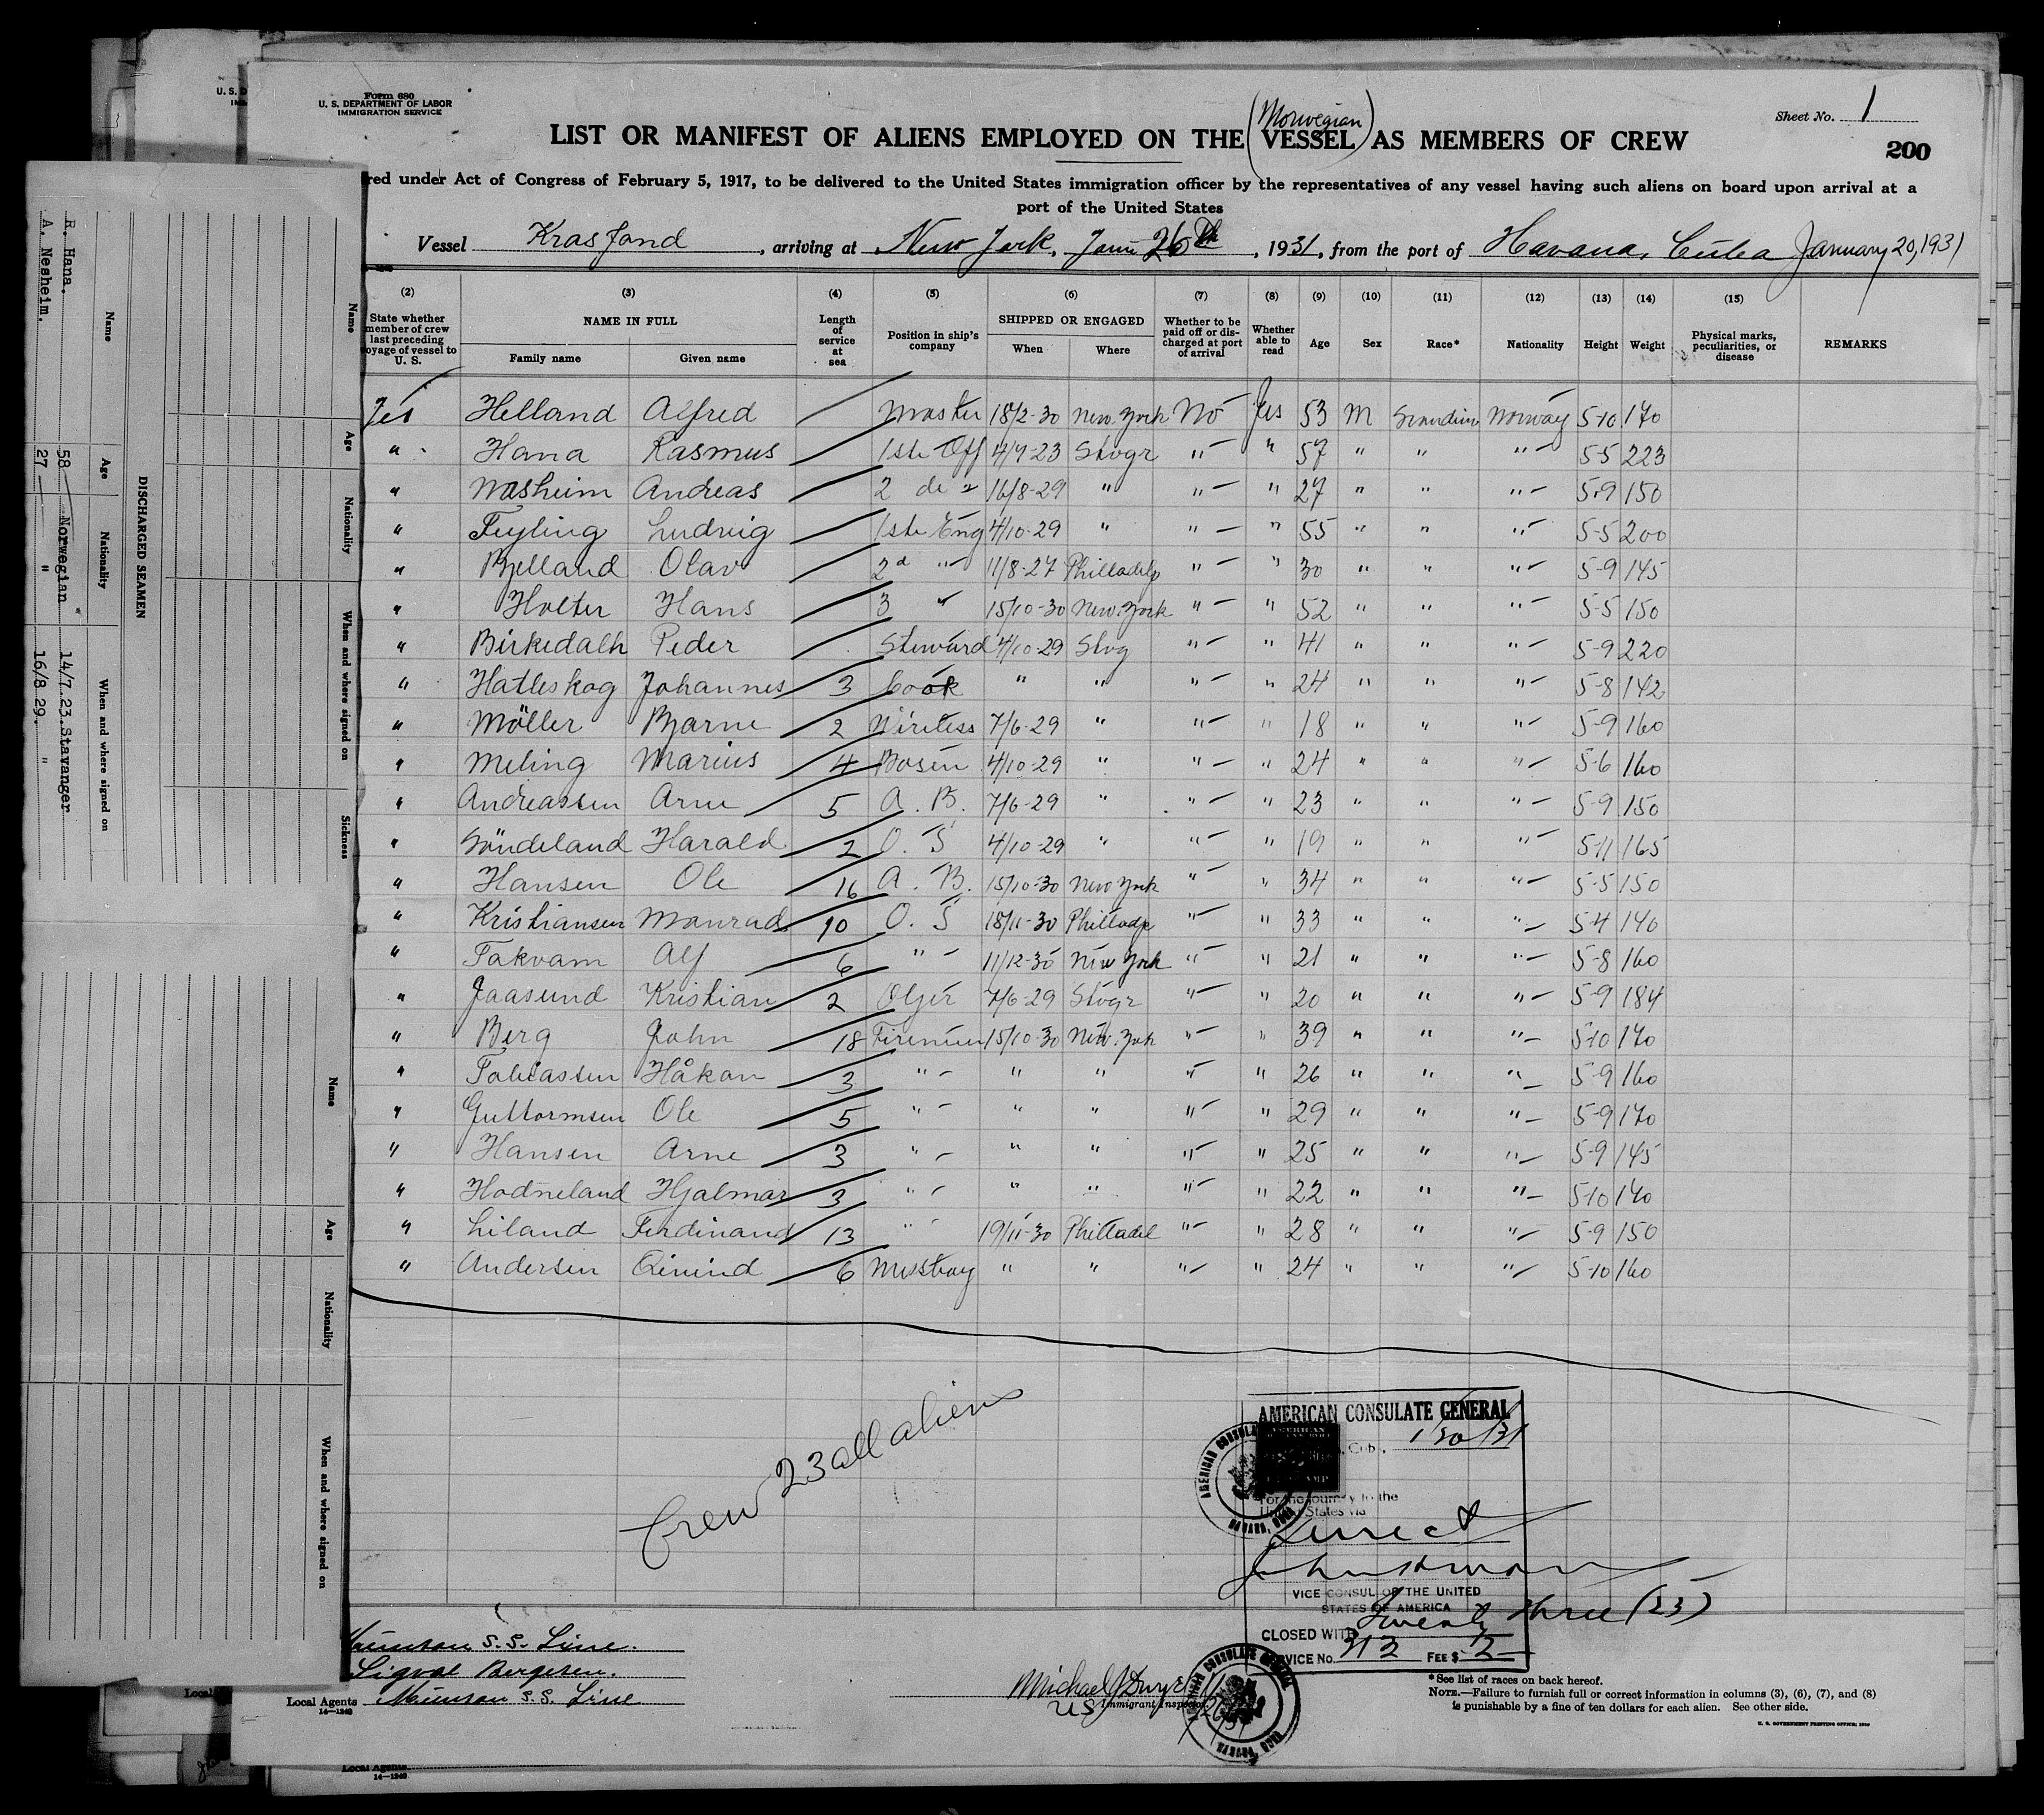 Form 680
U. S. DEPARTMENT OF LABOR
IMMIGRATION SERVICE
Sheet No. 1
(Norwegian)
LIST OR MANIFEST OF ALIENS EMPLOYED ON THE VESSEL AS MEMBERS OF CREW
200
red under Act of Congress of February 5, 1917, to be delivered to the United States immigration officer by the representatives of any vessel having such aliens on board upon arrival at a
port of the United States
Vessel Krasfond, arriving at New York, Jan 26th, 1931, from the port of Havana, Cuba January 20, 1931
(2) (3) (4) (5) (6) (7) (8) (9) (10) (11) (12) (13) (14) (15)
State whether member of crew last preceding oyage of vessel to U. S. NAME IN FULL Family name Given name Length of service at sea Position in ship's company SHIPPED OR ENGAGED When Where Whether to be paid off or discharged at port of arrival Whether able to read Age Sex Race* Nationality Height Weight Physical marks, peculiarities, or disease REMARKS
Yes Helland Alfred Master 18/2-30 New York No Yes 53 M Scandin Norway 5-10 170
" Hana Rasmus 1ste Off 4/7-23 Stvgr " " 57 " " " 5-5 223
" Nasheim Andreas 2 de " 16/8-29 " " " 27 " " " 5-9 150
" Feyling Ludvig 1ste Eng 4/10-29 " " " 55 " " " 5-5 200
" Bjelland Olav 2d " 11/8-27 Philladelp " " 30 " " " 5-9 145
" Holter Hans 3 " 15/10-30 New York " " 52 " " " 5-5 150
" Birkedalh Peder Steward 4/10-29 Stvg " " 41 " " " 5-9 220
" Hatleskog Johannes 3 Cook " " " " 24 " " " 5-8 142
" Möller Bjarne 2 Wireless 7/6-29 " " " 18 " " " 5-9 160
" Meling Marius 4 Bosen 4/10-29 " " " 24 " " " 5-6 160
" Andreassen Arne 5 A. B. 7/6-29 " " " 23 " " " 5-9 150
" Söndeland Harald 2 O. S 4/10-29 " " " 19 " " " 5-11 165
" Hansen Ole 16 A. B. 15/10-30 New York " " 34 " " " 5-5 150
" Kristiansen Monrad 10 O. S 18/11-30 Philladp " " 33 " " " 5-4 140
" Takvam Alf 6 " 11/12-30 New York " " 21 " " " 5-8 160
" Jaasund Kristian 2 Oljer 7/6-29 Stvgr " " 20 " " " 5-9 184
" Berg John 18 Firemen 15/10-30 New York " " 39 " " " 5-10 170
" Tobiassen Håkon 3 " " " " " 26 " " " 5-9 160
" Guttormsen Ole 5 " " " " " 29 " " " 5-9 170
" Hansen Arne 3 " " " " " 25 " " " 5-9 145
" Hodneland Hjalmar 3 " " " " " 22 " " " 5-10 140
" Liland Ferdinand 13 " 19/11-30 Philladel " " 28 " " " 5-9 150
" Andersen Eivind 6 Messboy " " " " 24 " " " 5-10 160
Crew 23 all aliens
AMERICAN CONSULATE GENERAL
1/20/31
For the journey to the
United States via
Direct
VICE CONSUL OF THE UNITED
STATES OF AMERICA
Twenty three (23)
CLOSED WITH
SERVICE No. 313 FEE $ 12
AMERICAN CONSULATE GENERAL
HAVANA, CUBA
Munson S.S. Line.
Sigval Bergesen.
Local Agents Munson S.S. Line
14—1240
Michael J Dwyer
U S Immigrant Inspector
1/26/31
*See list of races on back hereof.
NOTE.—Failure to furnish full or correct information in columns (3), (6), (7), and (8)
is punishable by a fine of ten dollars for each alien. See other side.
U. S. GOVERNMENT PRINTING OFFICE: 1930
Local Agents
14—1240
DISCHARGED SEAMEN
Name Age Nationality When and where signed on
R. Hana. 58 Norwegian 14/7.23.Stavanger
A. Nesheim. 27 " 16/8 29. "
Name Age Nationality When and where signed on Sickness
Name Age Nationality When and where signed on